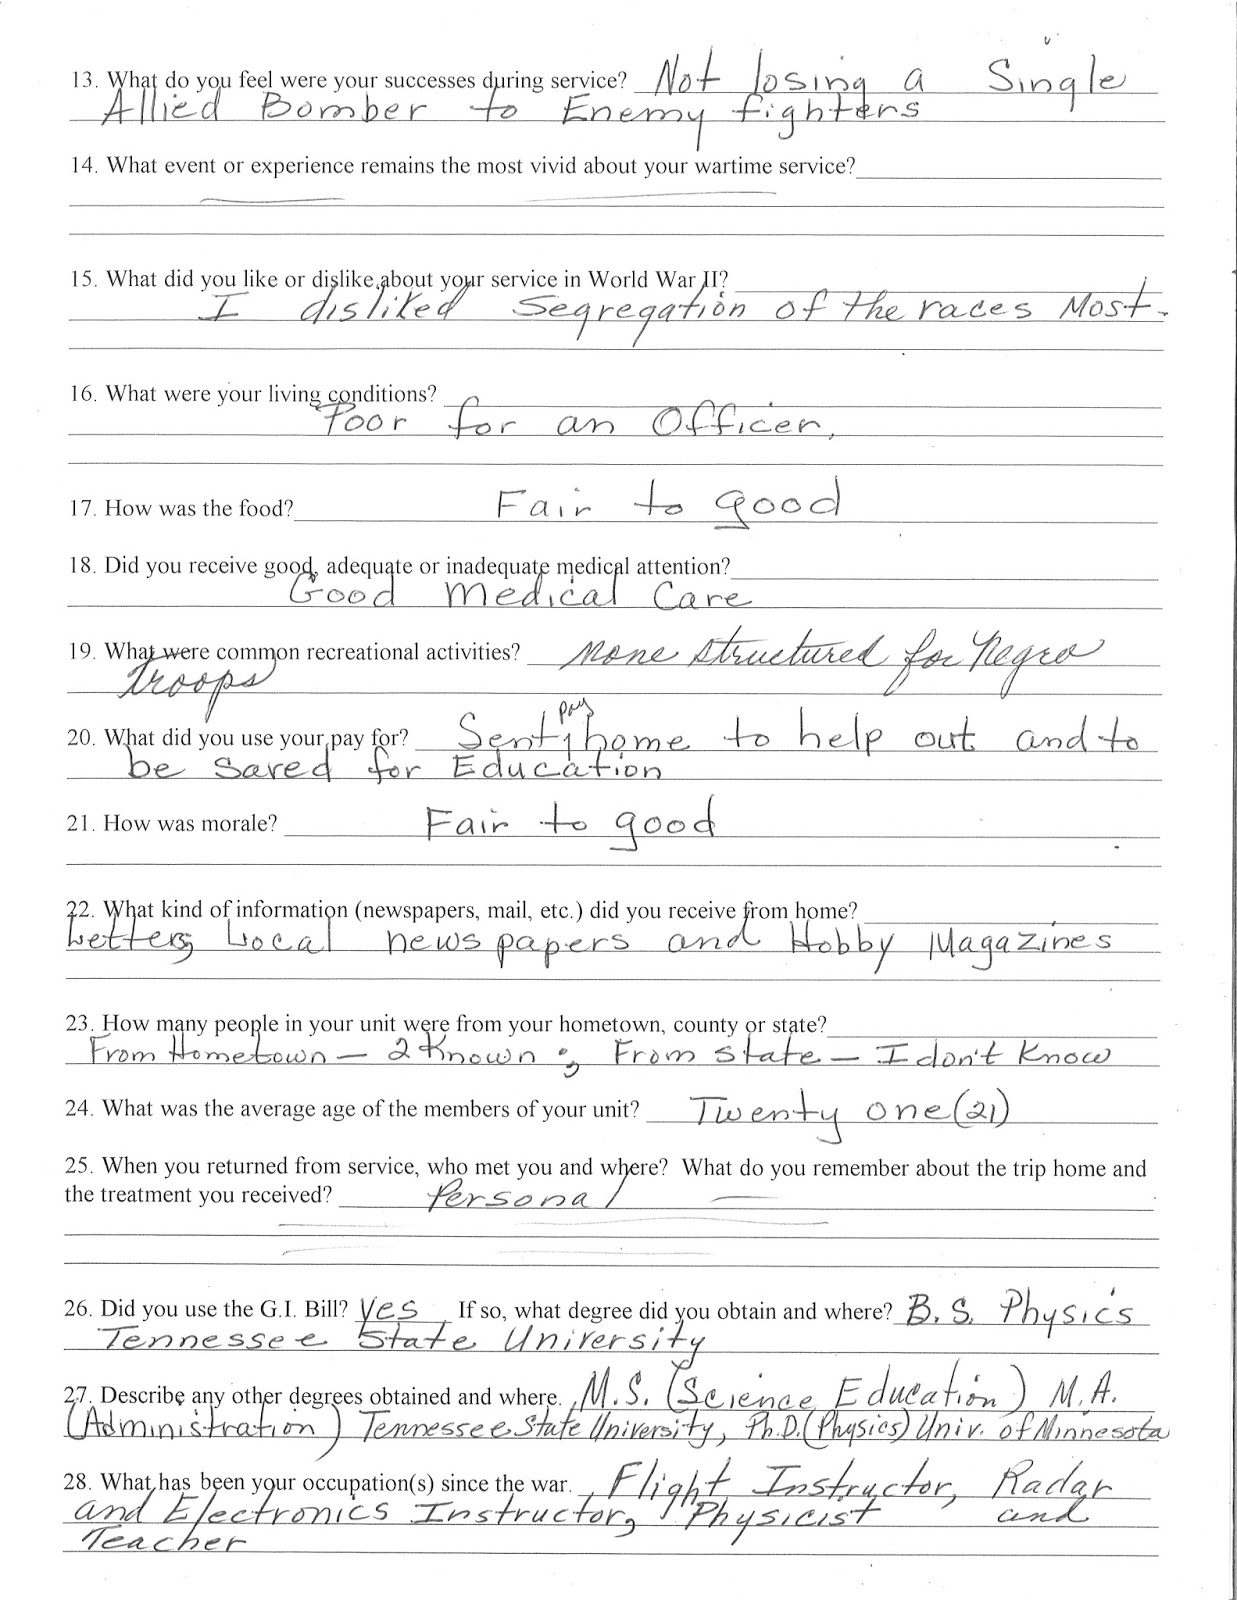 13. What do you feel were your successes during service? Not losing a Single
Allied Bomber to Enemy fighters
14. What event or experience remains the most vivid about your wartime service?
15. What did you like or dislike about your service in World War II?
I disliked Segregation of the races Most.
16. What were your living conditions?
Poor for an Officer.
17. How was the food? Fair to good
18. Did you receive good, adequate or inadequate medical attention?
Good Medical Care
19. What were common recreational activities? None structured for Negro
troops
20. What did you use your pay for? Sent pay home to help out and to
be saved for Education
21. How was morale? Fair to good
22. What kind of information (newspapers, mail, etc.) did you receive from home?
Letters, Local newspapers and Hobby Magazines
23. How many people in your unit were from your hometown, county or state?
From Hometown - 2 Known ; From State - I don't Know
24. What was the average age of the members of your unit? Twenty one (21)
25. When you returned from service, who met you and where? What do you remember about the trip home and
the treatment you received? Personal
26. Did you use the G.I. Bill? Yes If so, what degree did you obtain and where? B.S. Physics
Tennessee State University
27. Describe any other degrees obtained and where. M.S. (Science Education) M.A.
(Administration) Tennessee State University, Ph.D. (Physics) Univ. of Minnesota
28. What has been your occupation(s) since the war. Flight Instructor, Radar
and Electronics Instructor, Physicist and
Teacher